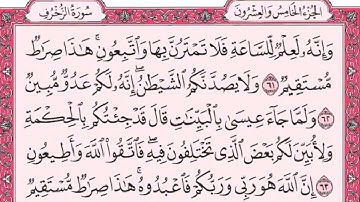 الجزء الخامس والعشرون
سورة الزخرف
وَإِنَّهُۥ لَعِلْمٌ لِّلسَّاعَةِ فَلَا تَمْتَرُنَّ بِهَا وَٱتَّبِعُونِ ۚ هَٰذَا صِرَٰطٌ
مُّسْتَقِيمٌ ٦١ وَلَا يَصُدَّنَّكُمُ ٱلشَّيْطَٰنُ ۖ إِنَّهُۥ لَكُمْ عَدُوٌّ مُّبِينٌ
٦٢ وَلَمَّا جَآءَ عِيسَىٰ بِٱلْبَيِّنَٰتِ قَالَ قَدْ جِئْتُكُم بِٱلْحِكْمَةِ
وَلِأُبَيِّنَ لَكُم بَعْضَ ٱلَّذِى تَخْتَلِفُونَ فِيهِ ۖ فَٱتَّقُوا۟ ٱللَّهَ وَأَطِيعُونِ
٦٣ إِنَّ ٱللَّهَ هُوَ رَبِّى وَرَبُّكُمْ فَٱعْبُدُوهُ ۚ هَٰذَا صِرَٰطٌ مُّسْتَقِيمٌ